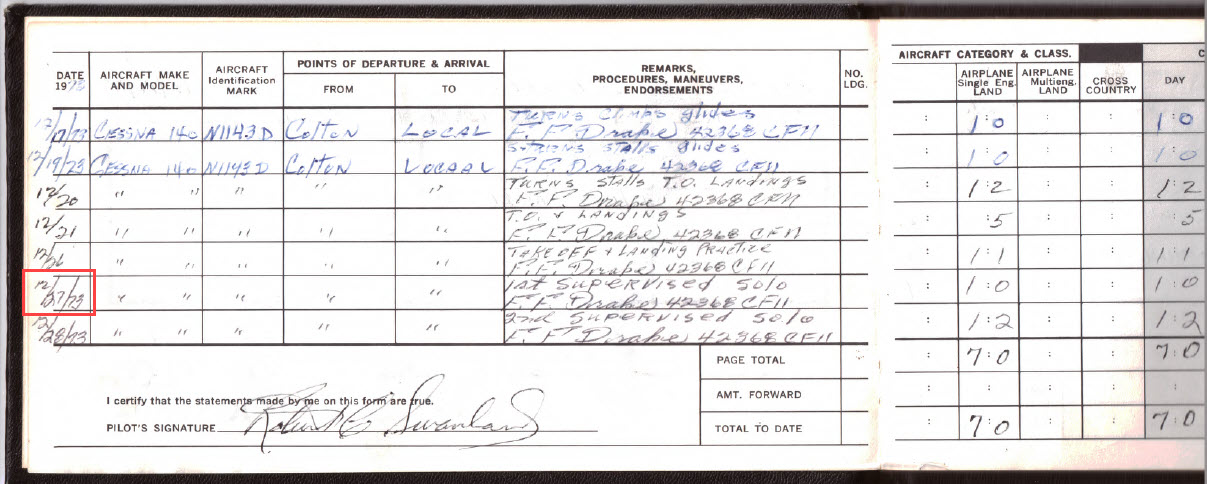 DATE 1973 AIRCRAFT MAKE AND MODEL AIRCRAFT Identification MARK POINTS OF DEPARTURE & ARRIVAL FROM TO REMARKS, PROCEDURES, MANEUVERS, ENDORSEMENTS NO. LDG. AIRCRAFT CATEGORY & CLASS. AIRPLANE Single Eng. LAND AIRPLANE Multieng. LAND CROSS COUNTRY C DAY
TURNS Climbs glides
12/17/73 CESSNA 140 N1143D Colton LOCAL F. F. Drake 42368 CFII 1:0 1:0
S-TURNS STALLS glides
12/19/73 CESSNA 140 N1143D Colton LOCAAL F. F. Drake 42368 CFII 1:0 1:0
TURNS STALLS T.O. LANDINGS
12/20 " " " " " F. F. Drake 42368 CFII 1:2 1:2
T.O. & LANDINGS
12/21 " " " " " F. F. Drake 42368 CFII :5 :5
TAKEOFF & Landing Practice
12/26 " " " " " F. F. Drake 42368 CFII 1:1 1:1
1st Supervised Solo
12/27/73 " " " " " F. F. Drake 42368 CFII 1:0 1:0
2nd Supervised Solo
12/28/73 " " " " " F. F. Drake 42368 CFII 1:2 1:2
PAGE TOTAL 7:0 7:0
I certify that the statements made by me on this form are true.
AMT. FORWARD
PILOT'S SIGNATURE Robert C Swanland TOTAL TO DATE 7:0 7:0